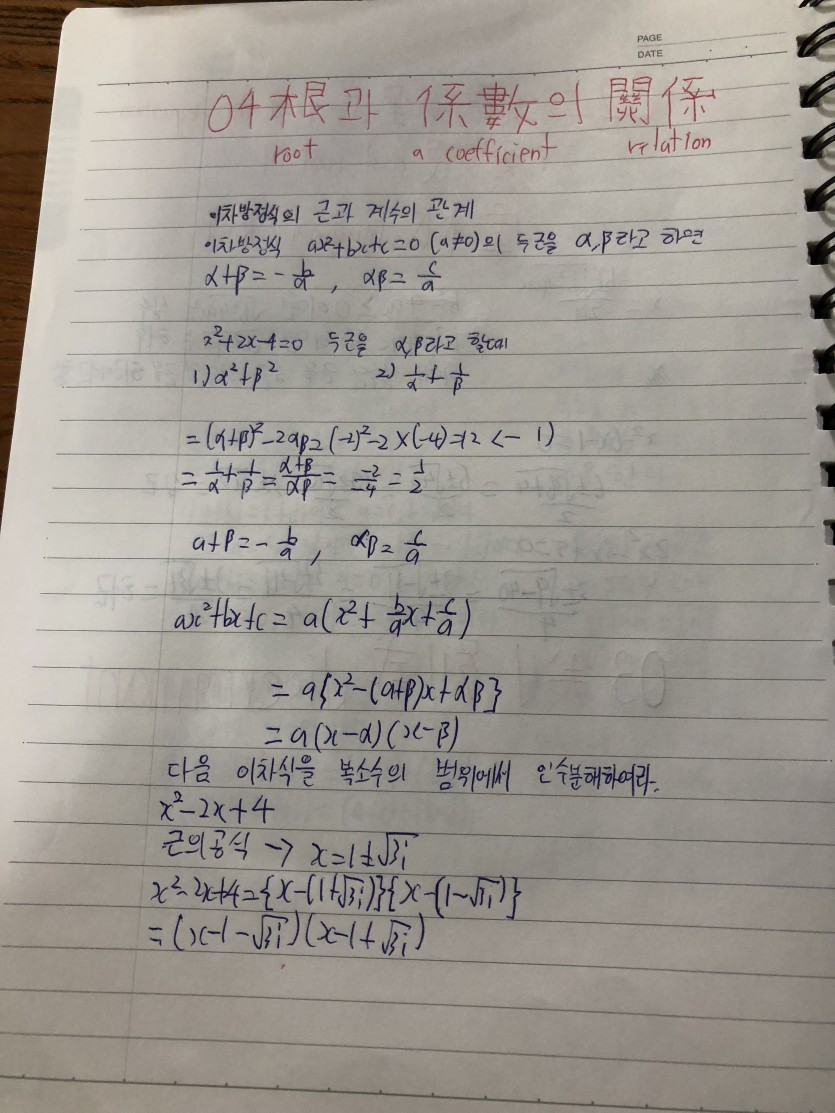 PAGE
DATE
04 根과 係數의 關係
root a coefficient relation
이차방정식의 근과 계수의 관계
이차방정식 ax²+bx+c=0 (a≠0)의 두근을 α,β라고 하면
α+β=-b/a , αβ=c/a
x²+2x-4=0 두근을 α,β라고 할때
1) α²+β² 2) 1/α+1/β
=(α+β)²-2αβ=(-2)²-2×(-4)=12 <- 1)
=1/α+1/β=α+β/αβ=-2/-4=1/2
a+β=-b/a , αβ=c/a
ax²+bx+c=a(x²+b/a x+c/a)
=a{x²-(a+β)x+αβ}
=a(x-α)(x-β)
다음 이차식을 복소수의 범위에서 인수분해하여라.
x²-2x+4
근의공식 -> x=1±√3i
x²-2x+4={x-(1+√3i)}{x-(1-√3i)}
=(x-1-√3i)(x-1+√3i)